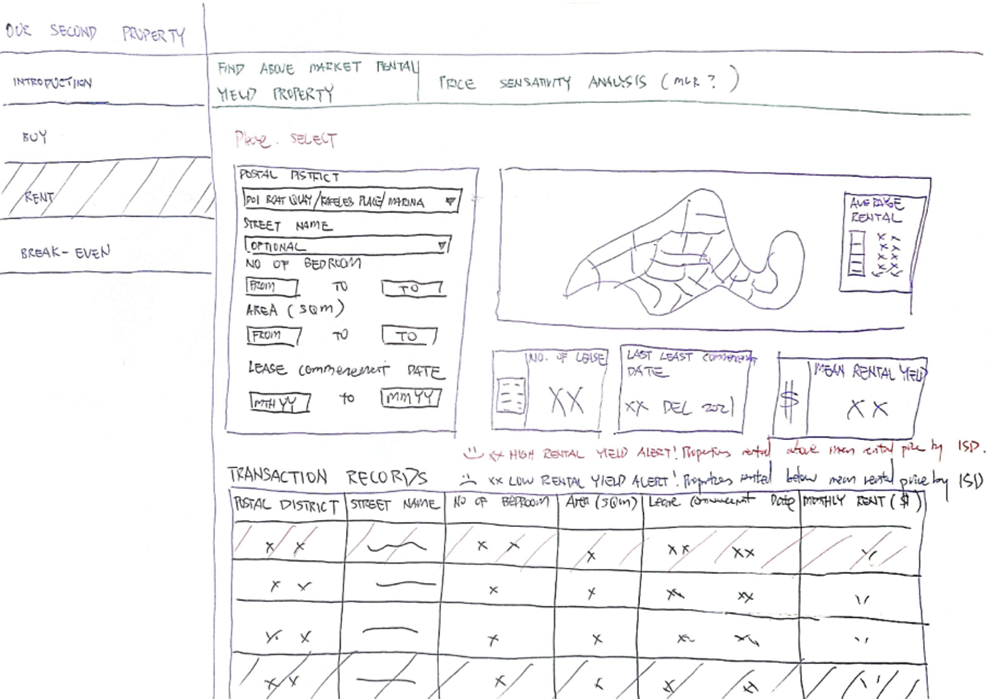 OUR SECOND PROPERTY
INTRODUCTION
BUY
RENT
BREAK-EVEN
FIND ABOVE MARKET RENTAL
YIELD PROPERTY
PRICE SENSATIVITY ANALYSIS (MLR?)
Please SELECT
POSTAL DISTRICT
D01 BOAT QUAY/RAFFLES PLACE/MARINA
STREET NAME
OPTIONAL
NO OF BEDROOM
FROM TO TO
AREA (SQM)
FROM TO TO
LEASE COMMENCEMENT DATE
MTHYY TO MMYY
AVERAGE
RENTAL
X X
X X
X X
X X
NO. OF LEASE
XX
LAST LEAST COMMENCEMENT
DATE
XX DEC 2021
$
MEAN RENTAL YIELD
XX
XX HIGH RENTAL YIELD ALERT! Properties rented above mean rental price by 1SD.
XX LOW RENTAL YIELD ALERT! Properties rented below mean rental price by 1SD
TRANSACTION RECORDS
POSTAL DISTRICT STREET NAME NO OF BEDROOM AREA (SQM) LEASE COMMENCEMENT DATE MONTHLY RENT ($)
X X X X X XX XX
X X X X XX XX
X X X X XX XX
X X X X XX XX